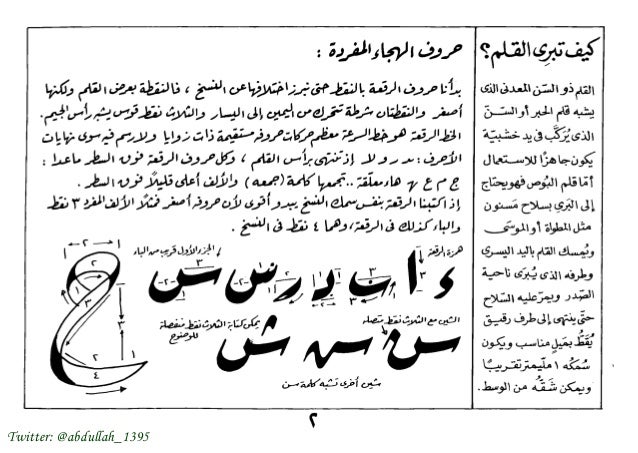 كيف تبرى القلم؟
القلم ذو السن المعدنى الذى
يشبه قلم الحبر أو السن
الذى يُركَّب فى يد خشبية
يكون جاهزًا للاستعمال
أمّا قلم البُوص فهو يحتاج
إلى البَرْي بسلاح مَسنون
مثل المطواة أو الموسَى
ويُمسك القلم باليد اليسرى
وطرفه الذى يُبرَى ناحية
الصّدر ويمرّ عليه السّلاح
حتّى ينتهى إلى طرف رقيق
يُقَطّ بميل مناسب ويكون
سُمكُه ١ ملّيمتر تقريبًا
ويمكن شَقّه من الوسط.
حروف الهجاء المفردة :
بدأنا حروف الرقعة بالنقط حتى نبرز اختلافها عن النسخ ، فالنقطة بعرض القلم ولكنها
أصغر والنقطتان شرطة تتحرك من اليمين إلى اليسار والثلاث نقط قوس يشبه رأس الجيم.
الخط الرقعة هو خط السرعة معظم حركات حروفه مستقيمة ذات زوايا ولا رسم فيه سوى نهايات
الأحرف: مد ر و لا إذ تنتهى برأس القلم ، وكل حروف الرقعة فوق السطر ماعدا :
ج م ع ﻬ هاء معلّقة .. تجمعها كلمة (جمعه) والألف أعلى قليلًا فوق السطر .
إذا كتبنا الرقعة بنفس سمك النسخ يبدو أقوى لأن حروفه أصغر فمثلًا الألف المفرد ٣ نقط
والباء كذلك فى الرقعة، وهما ٤ نقط فى النسخ .
همزة الرقعة
الجزء الأول قريب من الباء
ء ا ب د ر س س
الشين مع الثلاث نقط متصلة
يمكن كتابة الثلاث نقط منفصلة
للوضوح
شين أخرى تشبه كلمة سن
٢
Twitter: @abdullah_1395